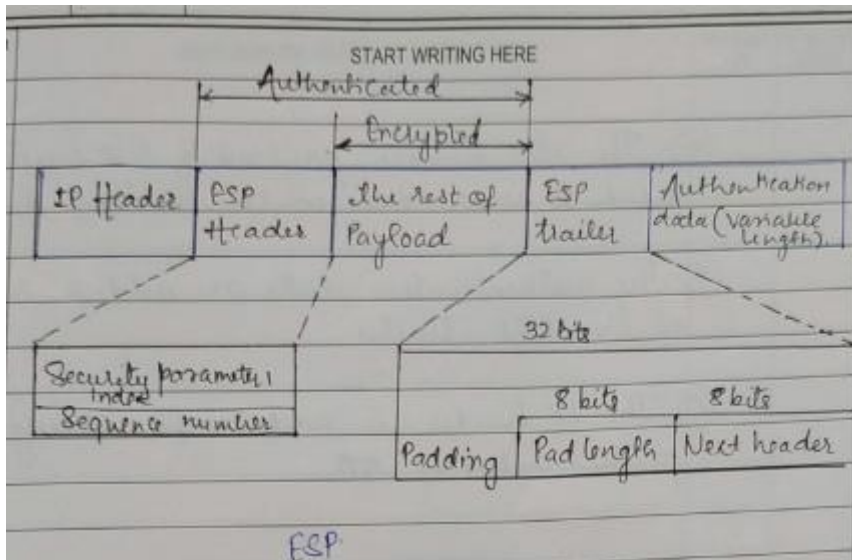 START WRITING HERE
Authenticated
Encrypted
IP Header
ESP
Header
the rest of
Payload
ESP
trailer
Authentication
data (variable
length)
32 bits
Security parameter
index
Sequence number
8 bits
8 bits
Padding
Pad length
Next header
ESP